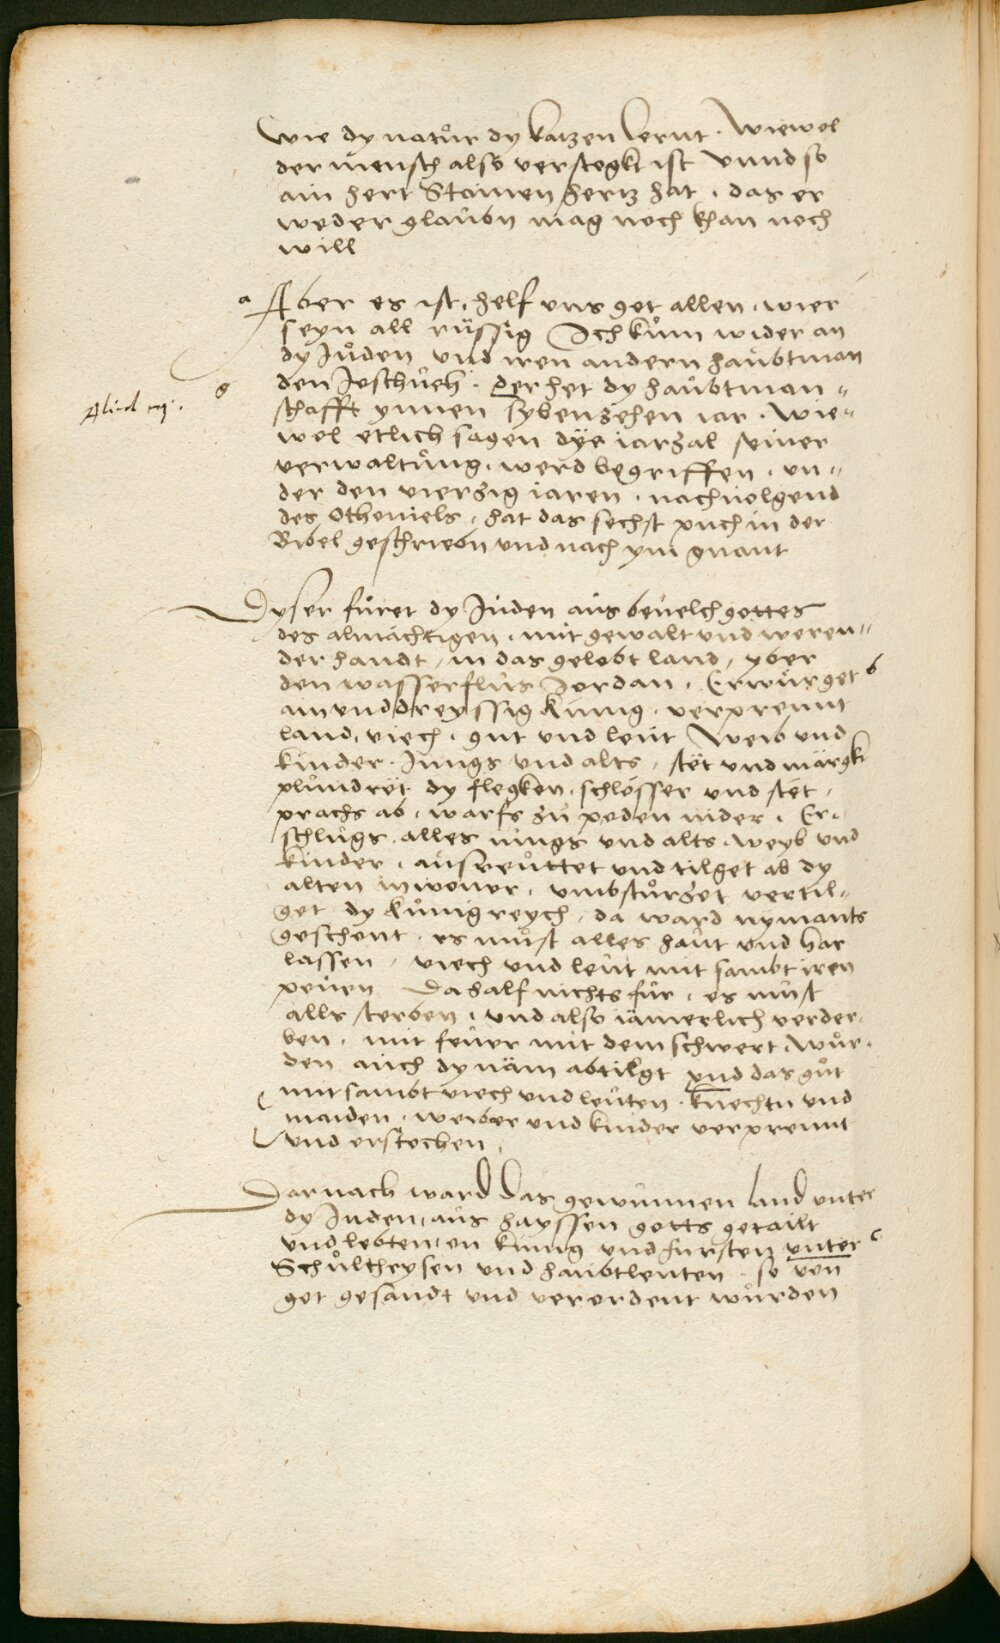 wie dy natůr dy katzen lernt · Wiewol
der mensch also verstogkt ist vnnd so
ain hert Stainen hertz hat · das er
weder glaubn mag noch khan noch
will
a Aber es ist, helf vns got allen, wier
seyn all rüssig Ich kům wider an
dy Jůden vnd iren andern haubtman
den Joschueh · der het dy haubtman=
schafft ynnen sybenzehen iar · Wie=
wol etlich sagen dÿe iarzal seiner
verwaltůng, werd begriffen, vn=
der den vierzig iaren, nachuolgend
des Othoniels, hat das sechst puch in der
Bibel geschriebn vnd nach ym gnant
Dyser fůret dy Jůden aus beuelch gottes
des almächtigen, mit gewalt vnd weren=
der handt, in das gelobt land, yber
den wasserflus Jordan, Erwürget b
ain vnd dreyssig Künig, verprennt
land, viech, gut vnd leut Weib vnd
kinder, Jungs vnd alts, stët vnd märgkt
plůndrët dy flegken, schlösser vnd stët,
prachs ab, warfs zu poden nider, Er=
schlůgs alles iungs vnd alts weyb vnd
kinder, ausreůttet vnd tilget ab dy
alten inwoner, vmbstůrzet vertil=
get dy Kůnigreych, da ward nymants
geschont, es můst alles haut vnd har
lassen, viech vnd leut mit sambt iren
Da half nichts für, es můst
alls sterben, vnd also iämerlich verder=
ben, mit feuer mit dem schwert, wůr=
den auch dy näm abtilgt vnd das gůt
mit sambt viech vnd leuten, knechtn vnd
maiden, weiber vnd kinder verprennt
vnd erstochen,
Darnach ward das gewunnen land vnter
dy Juden, aus hayssen gotts getailt
vnd lebten, on kunig vnd fursten vnter c
Schůltheysen vnd haubtleuten, so von
got gesandt vnd verordent wůrden